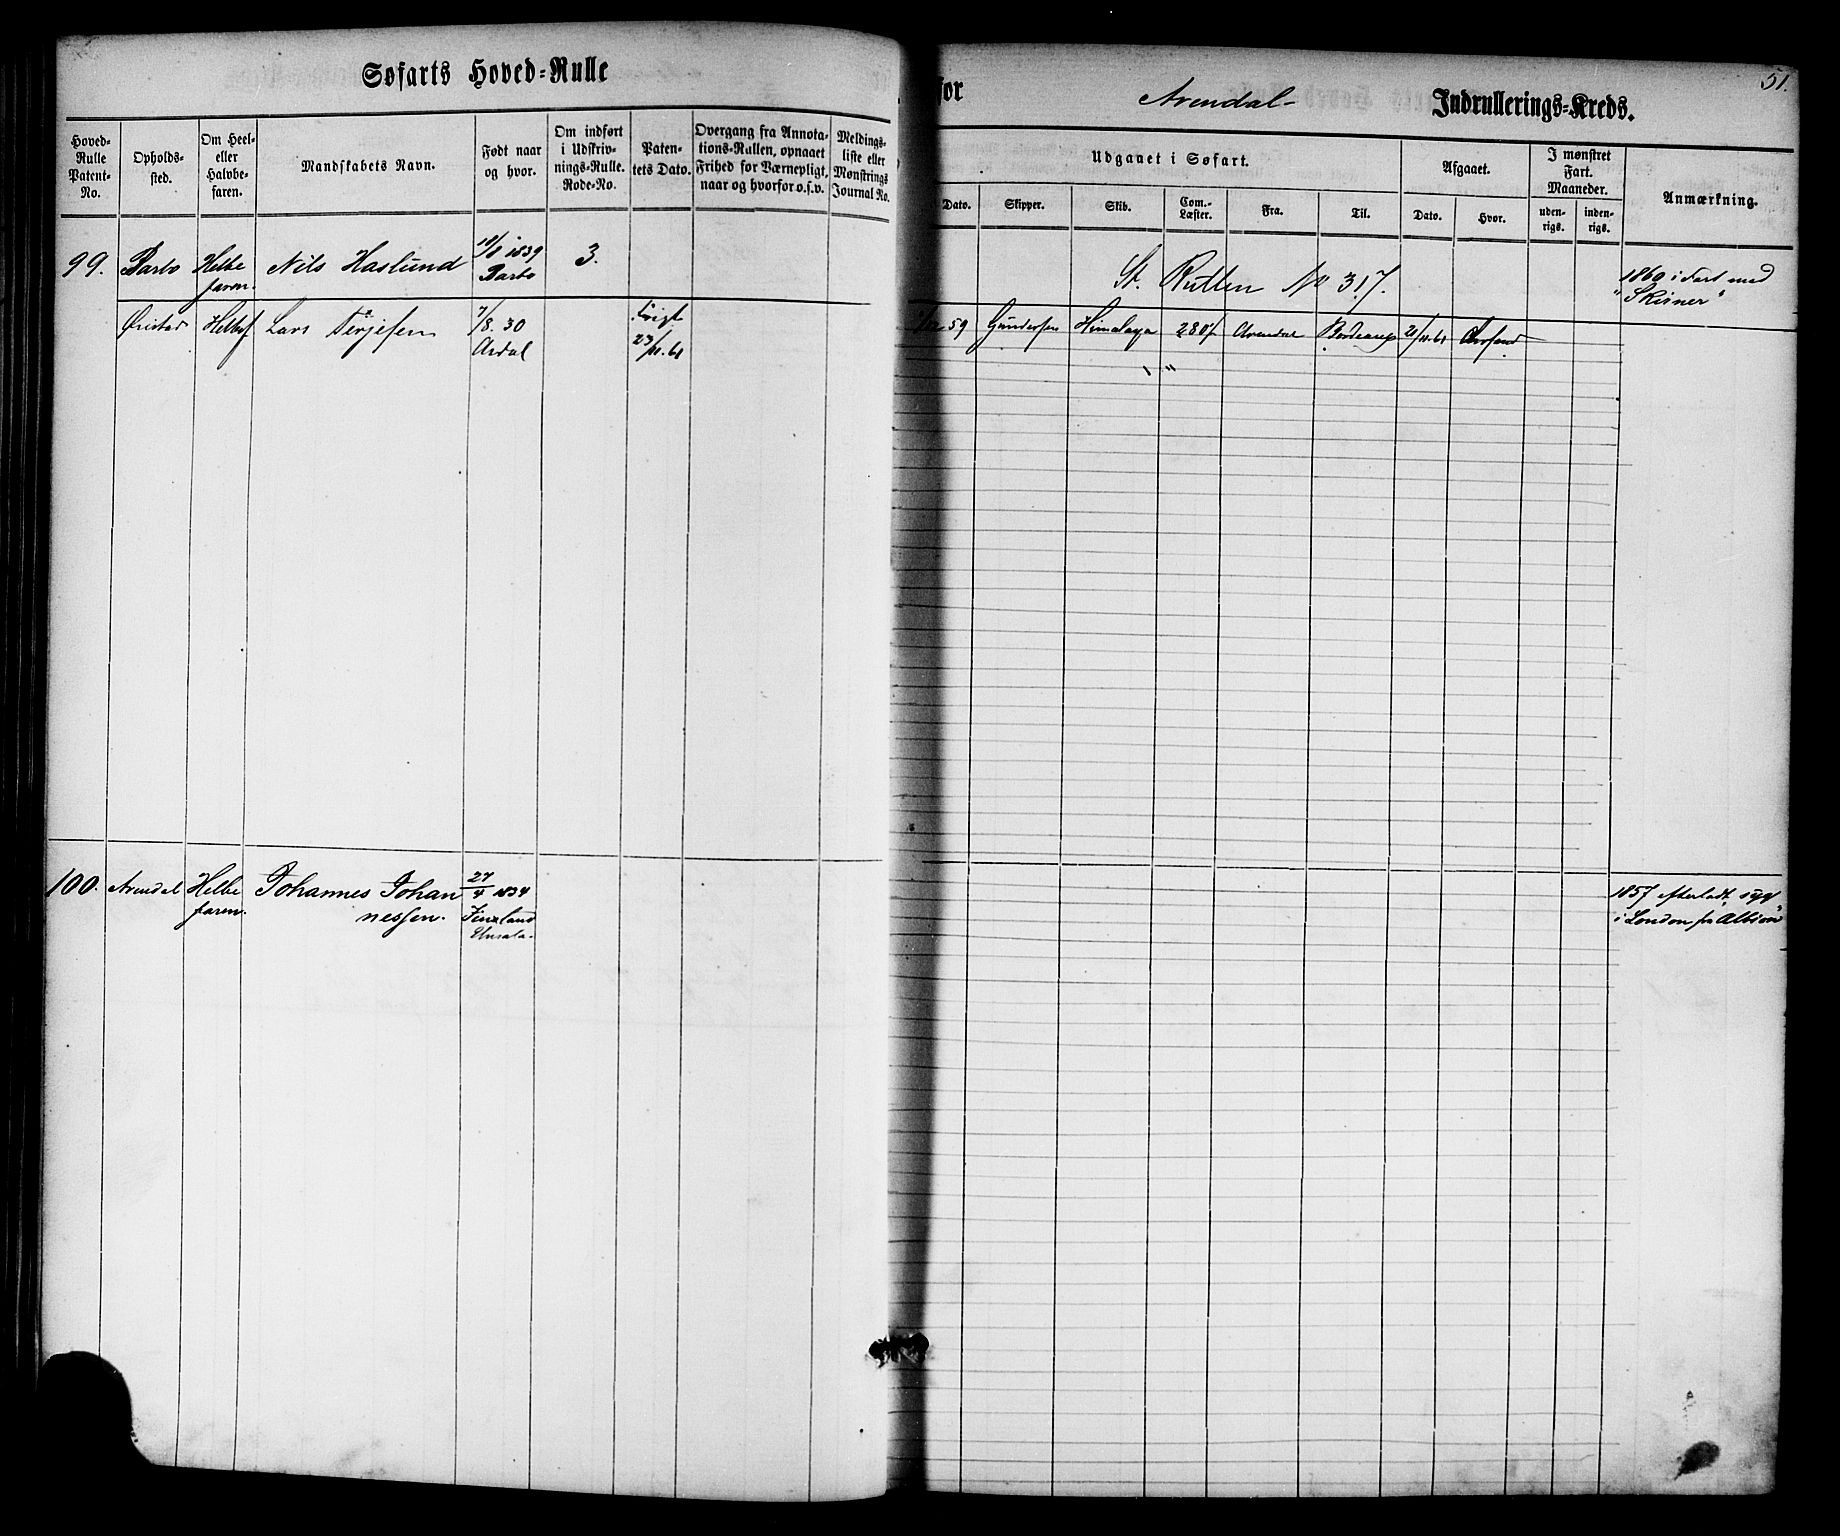 Søfarts Hoved-Rulle
for Arendal Indrullerings-Kreds.
51.
Hoved-Rulle Patent-No.
Opholds-sted.
Om Heel- eller Halvbe-faren.
Mandskabets Navn.
Født naar og hvor.
Om indført i Udskriv-nings-Rulle. Rode-No.
Paten-tets Dato.
Overgang fra Annota-tions-Rullen, opnaaet Frihed for Værnepligt, naar og hvorfor o.s.v.
Meldings-liste eller Mønstrings Journal No.
Udgaaet i Søfart.
Dato.
Skipper.
Skib.
Com.-Læster.
Fra.
Til.
Afgaaet.
Dato.
Hvor.
I mønstret Fart. Maaneder.
uden-rigs.
inden-rigs.
Anmærkning.
99. Barbo Helbe Nils Haslund 10/8 1839 3.
faren. Barbo
St. Rullen No 317.
1860 i Fart med
"Skirner"
Øiestad Helbef Lars Terjesen 7/8. 30
Asdal
23/11. 61
59 Gundersen Himalaya 280 Arendal Bordeaux 21/11. 61
100. Arendal Helbe Johannes Johan 27/4 1834
faren. nessen. Finland
1857 efterladt syg
i London fra Albion